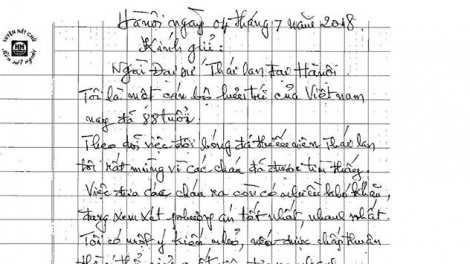 LUYỆN NÉT CHỮ
RÈN NẾT NGƯỜI
Hà Nội ngày 04 tháng 7 năm 2018.
Kính gửi:
Ngài Đại sứ Thái Lan tại Hà Nội.
Tôi là một cán bộ hưu trí của Việt Nam
nay đã 88 tuổi.
Theo dõi việc đội bóng đá thiếu niên Thái Lan
tôi rất mừng vì các cháu đã được tìm thấy.
Việc đưa các cháu ra còn có nhiều khó khăn,
đang xem xét phương án tốt nhất, nhanh nhất.
Tôi có một ý kiến nhỏ, nếu được chấp thuận